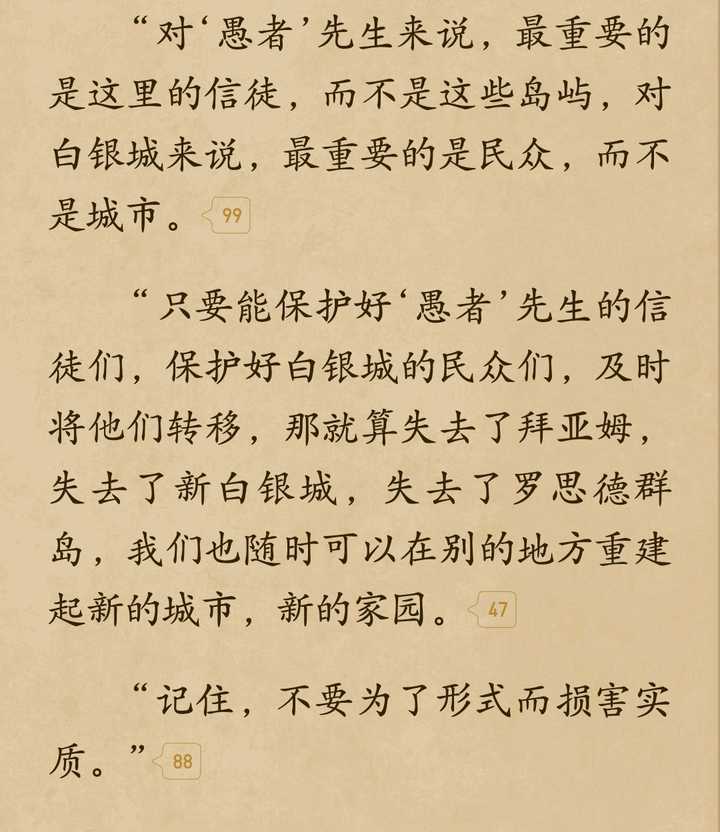 “对‘愚者’先生来说，最重要的
是这里的信徒，而不是这些岛屿，对
白银城来说，最重要的是民众，而不
是城市。 99
“只要能保护好‘愚者’先生的信
徒们，保护好白银城的民众们，及时
将他们转移，那就算失去了拜亚姆，
失去了新白银城，失去了罗思德群
岛，我们也随时可以在别的地方重建
起新的城市，新的家园。 47
“记住，不要为了形式而损害实
质。” 88